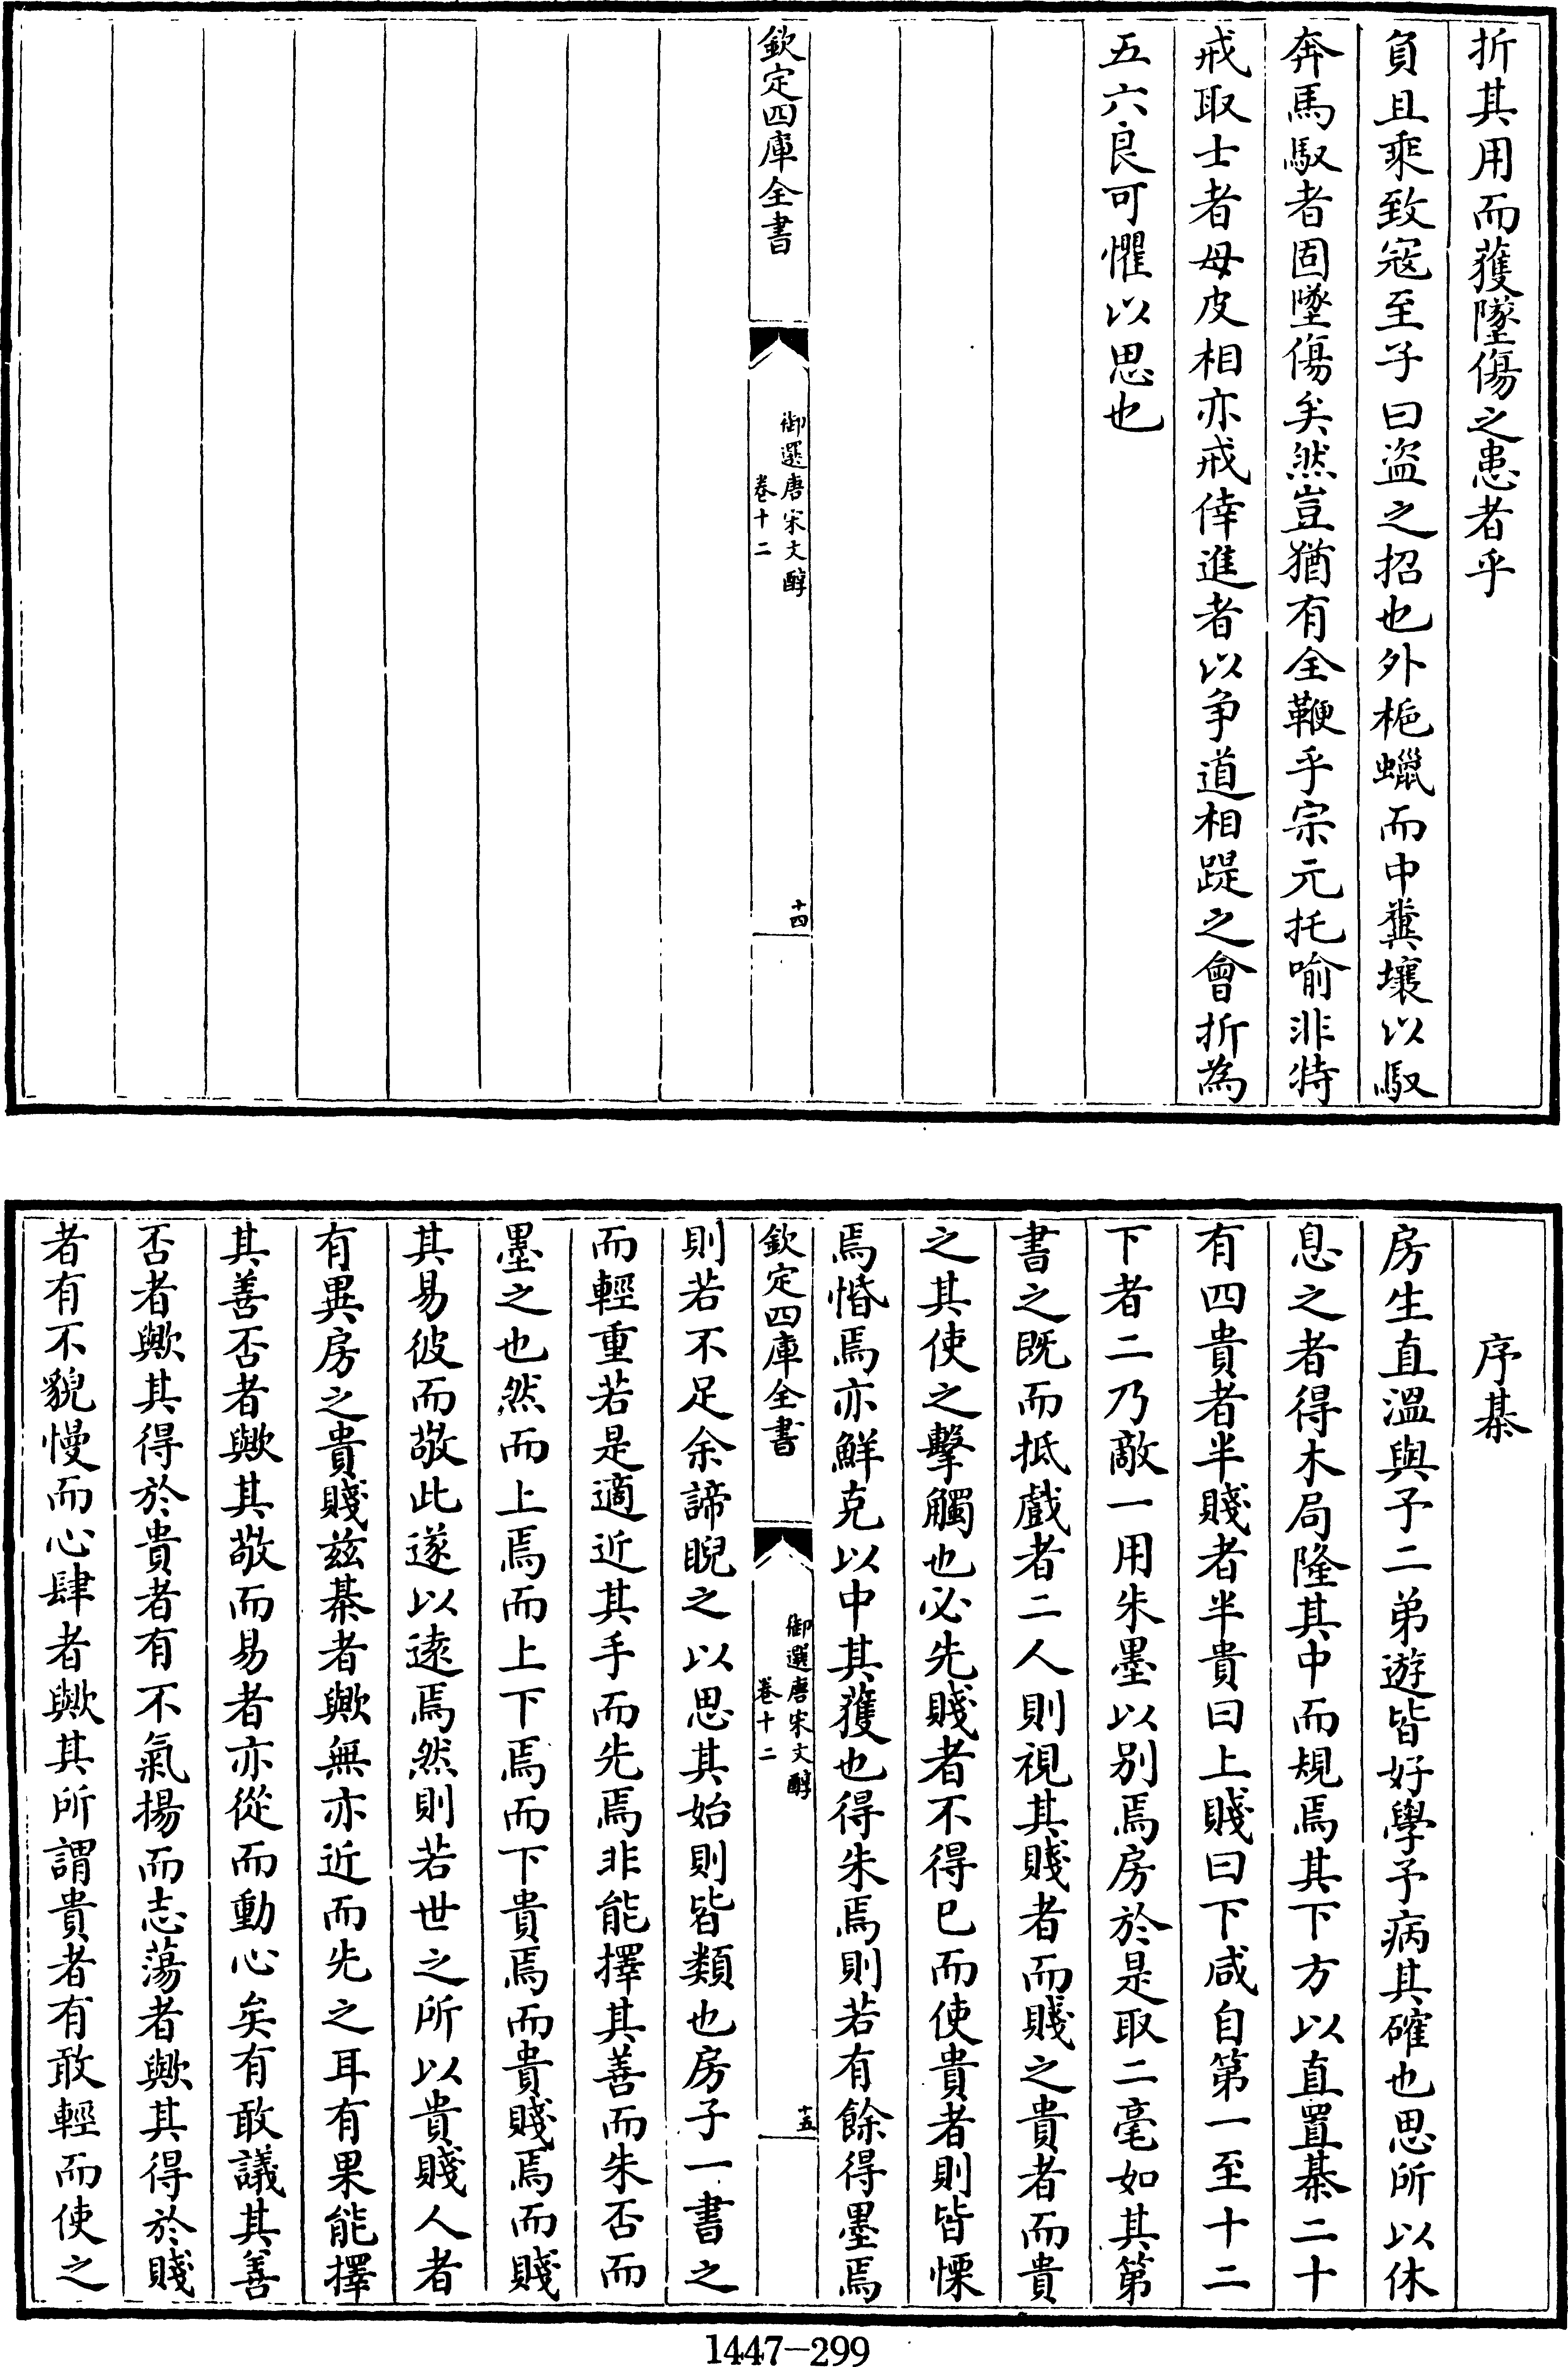 折其用而獲墜傷之患者乎
負且乘致寇至子曰盜之招也外梔蠟而中糞壤以馭
奔馬馭者固墜傷矣然豈猶有全鞭乎宗元托喻非特
戒取士者毋皮相亦戒倖進者以爭道相踶之會折為
五六良可懼以思也
欽定四庫全書
御選唐宋文醇
卷十二
十四
序棊
房生直溫與予二弟遊皆好學予病其確也思所以休
息之者得木局隆其中而規焉其下方以直置棊二十
有四貴者半賤者半貴曰上賤曰下咸自第一至十二
下者二乃敵一用朱墨以别焉房於是取二毫如其第
書之既而抵戲者二人則視其賤者而賤之貴者而貴
之其使之擊觸也必先賤者不得已而使貴者則皆慄
焉惛焉亦鮮克以中其獲也得朱焉則若有餘得墨焉
欽定四庫全書
御選唐宋文醇
卷十二
十五
則若不足余諦睨之以思其始則皆類也房子一書之
而輕重若是適近其手而先焉非能擇其善而朱否而
墨之也然而上焉而上下焉而下貴焉而貴賤焉而賤
其易彼而敬此遂以遠焉然則若世之所以貴賤人者
有異房之貴賤兹棊者歟無亦近而先之耳有果能擇
其善否者歟其敬而易者亦從而動心矣有敢議其善
否者歟其得於貴者有不氣揚而志蕩者歟其得於賤
者有不貌慢而心肆者歟其所謂貴者有敢輕而使之
1447-299